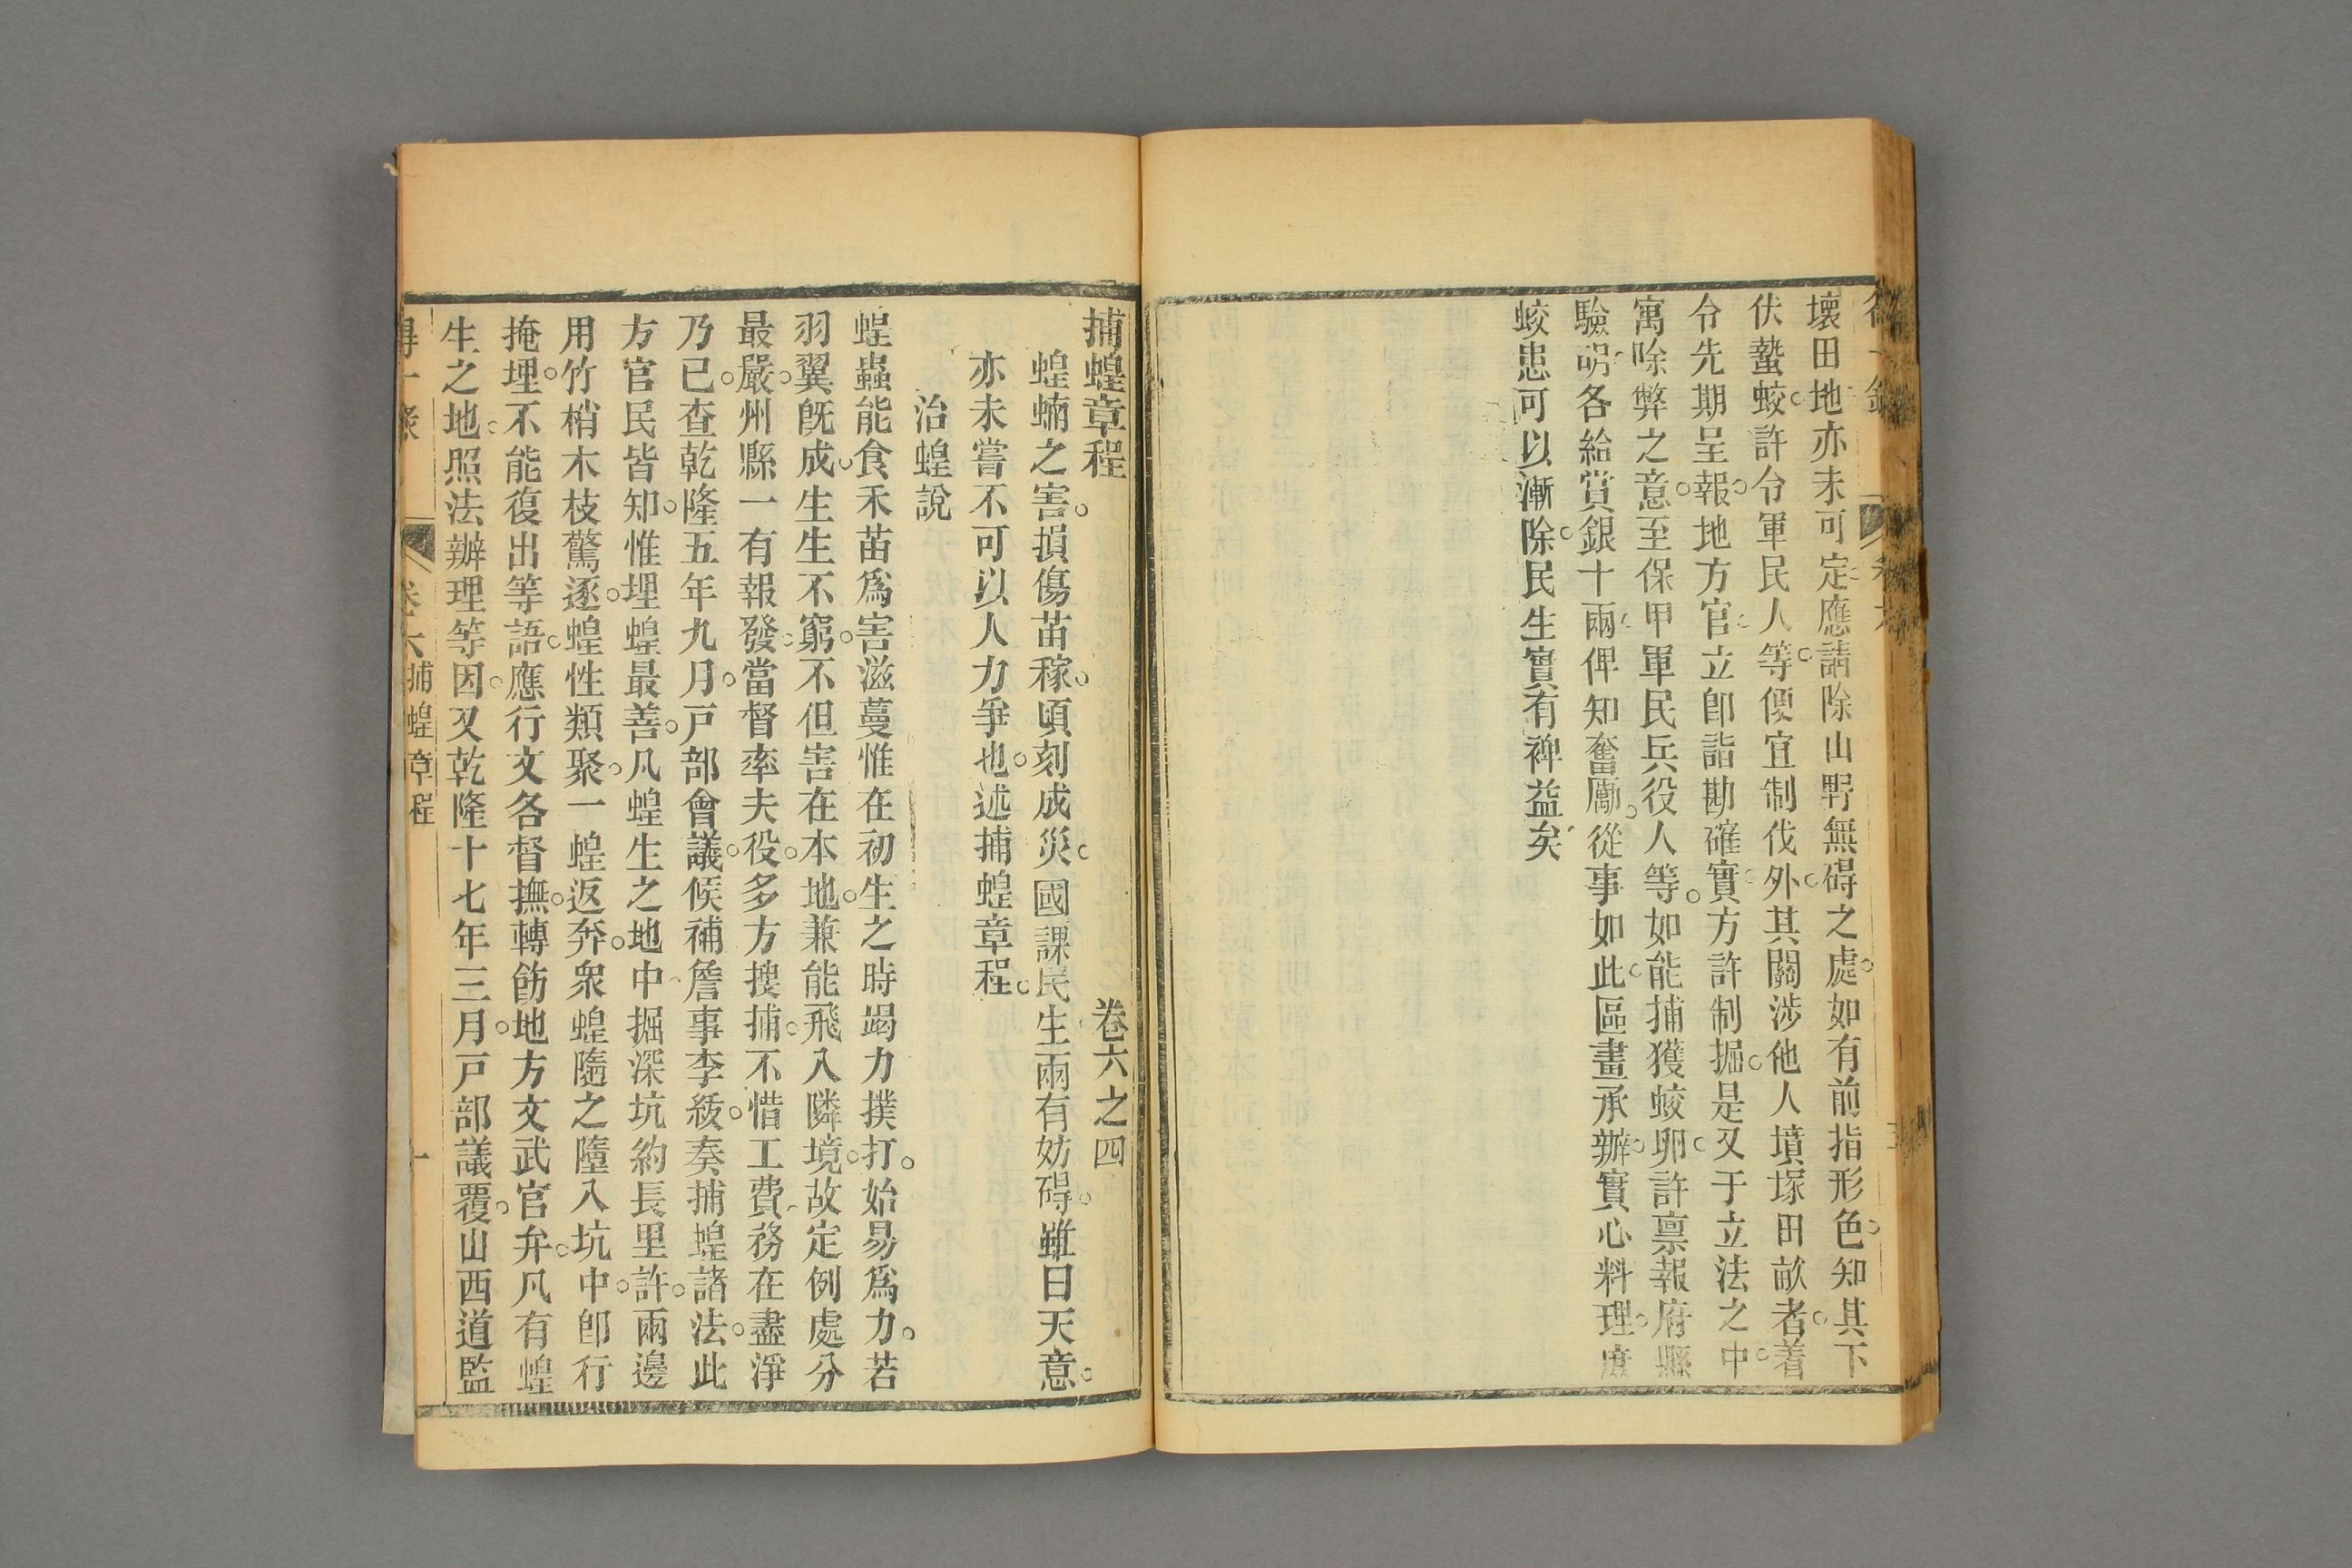 壞田地亦未可定應請除山野無碍之處如有前指形色知其下
伏蟄蛟許令軍民人等便宜制伐外其關涉他人墳塚田畝者着
令先期呈報地方官立卽詣勘確實方許制掘是又于立法之中
寓除弊之意至保甲軍民兵役人等如能捕獲蛟卵許禀報府縣
驗明各給賞銀十兩俾知奮勵從事如此區畫承辦實心料理庶
蛟患可以漸除民生實有裨益矣
捕蝗章程 卷六之四
蝗蝻之害損傷苗稼頃刻成災國課民生兩有妨碍雖曰天意
亦未嘗不可以人力爭也述捕蝗章程
治蝗說
蝗蟲能食禾苗爲害滋蔓惟在初生之時竭力撲打始易爲力若
羽翼旣成生生不窮不但害在本地兼能飛入隣境故定例處分
最嚴州縣一有報發當督率夫役多方搜捕不惜工費務在盡淨
乃已查乾隆五年九月戸部會議候補詹事李紱奏捕蝗諸法此
方官民皆知惟埋蝗最善凡蝗生之地中掘深坑約長里許兩邊
用竹梢木枝驚逐蝗性類聚一蝗返奔衆蝗隨之墮入坑中卽行
掩埋不能復出等語應行文各督撫轉飭地方文武官弁凡有蝗
生之地照法辦理等因又乾隆十七年三月戸部議覆山西道監
得一錄 卷六捕蝗章程 一